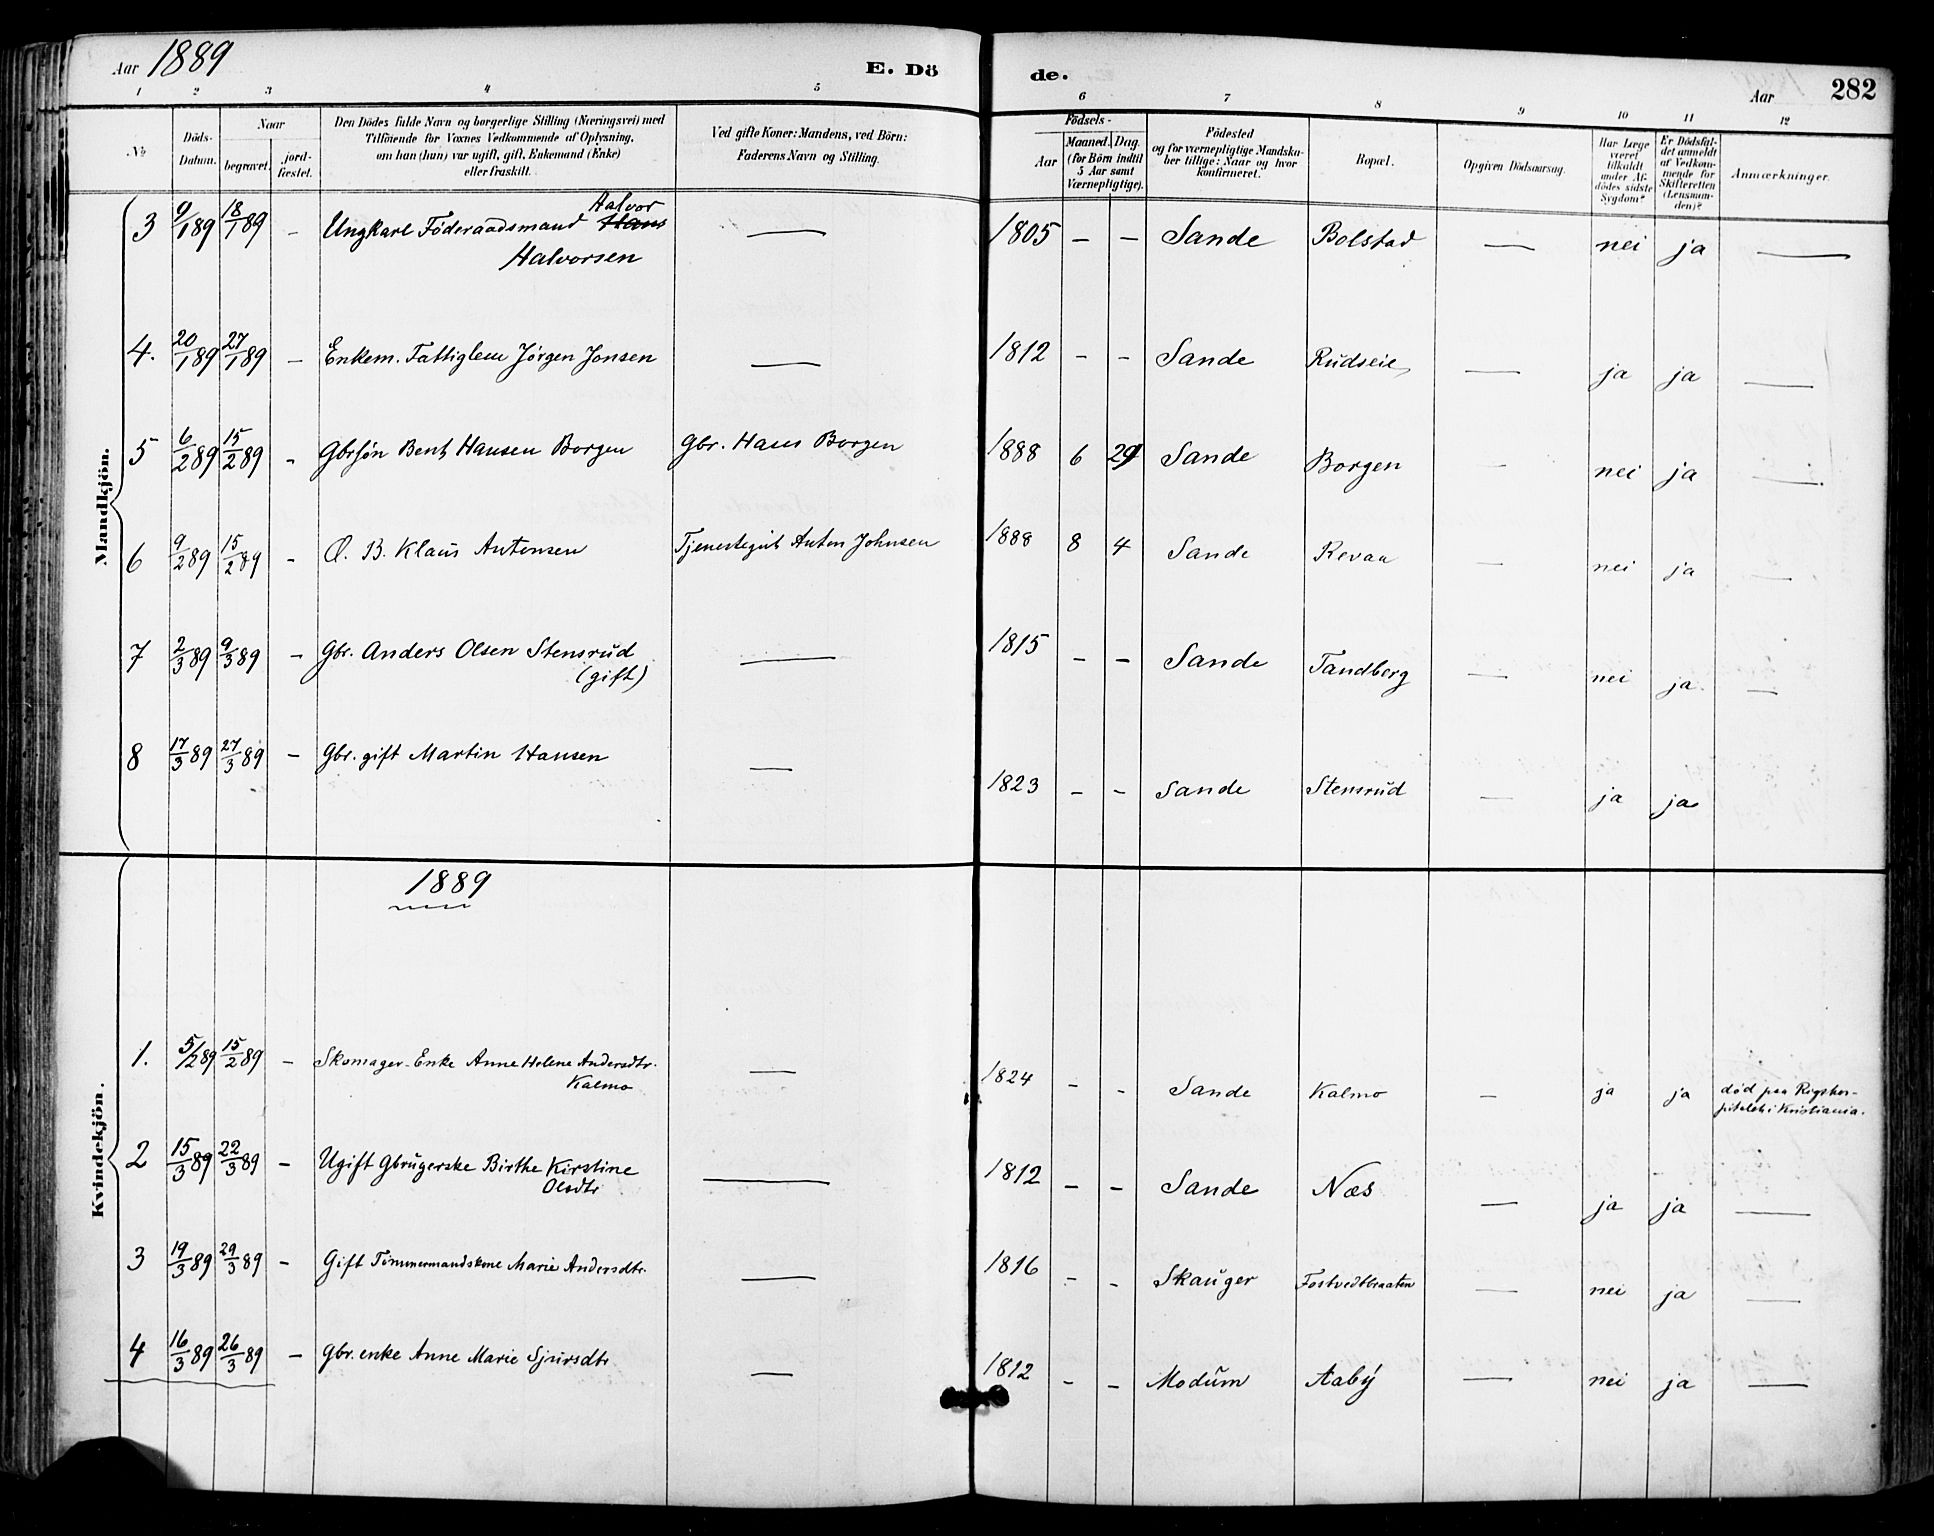 Aar 1889 E. Dö de. Aar 282
1 2 3 4 5 6 7 8 9 10 11 12
No
Döds-Datum.
Naar
begravet.
jord-fæstet.
Den Dödes fulde Navn og borgerlige Stilling (Næringsvei) med
Tilföiende for Voxnes Vedkommende af Oplysning,
om han (hun) var ugift, gift, Enkemand (Enke)
eller fraskilt.
Ved gifte Koner: Mandens, ved Börn:
Faderens Navn og Stilling.
Födsels-
Aar
Maaned. Dag.
(for Börn indtil
5 Aar samt
Værnepligtige).
Födested
og for værnepligtige Mandska-
ber tillige: Naar og hvor
konfirmeret.
Bopæl.
Opgiven Dödsaarsag.
Har Læge
været
tilkaldt
under Af-
dödes sidste
Sygdom?
Er Dödsfal-
det anmeldt
af Vedkom-
mende for
Skifteretten
(Lensman-
den)?
Anmærkninger.
Mandkjön.
3 9/1 89 18/1 89 – Ungkarl Föderaadsmand Halvor Hans — 1805 – – Sande Bolstad — nei ja —
Halvorsen
4. 20/1 89 27/1 89 – Enkem. Fattiglem Jörgen Jonsen — 1812 – – Sande Rudseie — ja ja —
5 6/2 89 15/2 89 – Gbrsön Bent Hansen Borgen Gbr. Hans Borgen 1888 6 29 Sande Borgen — nei ja —
6 9/2 89 15/2 89 – O. B. Klaus Antonsen Tjenestegut Anton Johnsen 1888 8 4 Sande Revaa — nei ja —
7 2/3 89 9/3 89 – Gbr. Anders Olsen Stensrud — 1815 – – Sande Tandberg — nei ja —
(gift)
8 17/3 89 27/3 89 – Gbr. gift Martin Hansen — 1823 – – Sande Stensrud — ja ja
1889
Kvindekjön.
1. 5/2 89 15/2 89 – Skomager-Enke Anne Helene Andersdtr. — 1824 – – Sande Kalmo — ja ja död paa Rigshos-
Kalmo pitalet i Kristiania.
2 15/3 89 22/3 89 – Ugift Gbrugerske Birthe Kirstine — 1812 – – Sande Næs — ja ja —
Olsdtr
3 19/3 89 29/3 89 – Gift Tömmermandskone Marie Andersdtr. — 1816 – – Skauger Fostvedtbraaten — nei ja —
4 16/3 89 26/3 89 – Gbr. enke Anne Marie Sjursdtr — 1812 – – Modum Aaby — nei ja —